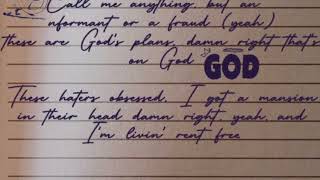 Call me anything, but an
nformant or a fraud (yeah)
these are God's plans, damn right that's
on God
GOD
These haters obsessed, I got a mansion
in their head damn right, yeah, and
I'm livin' rent free